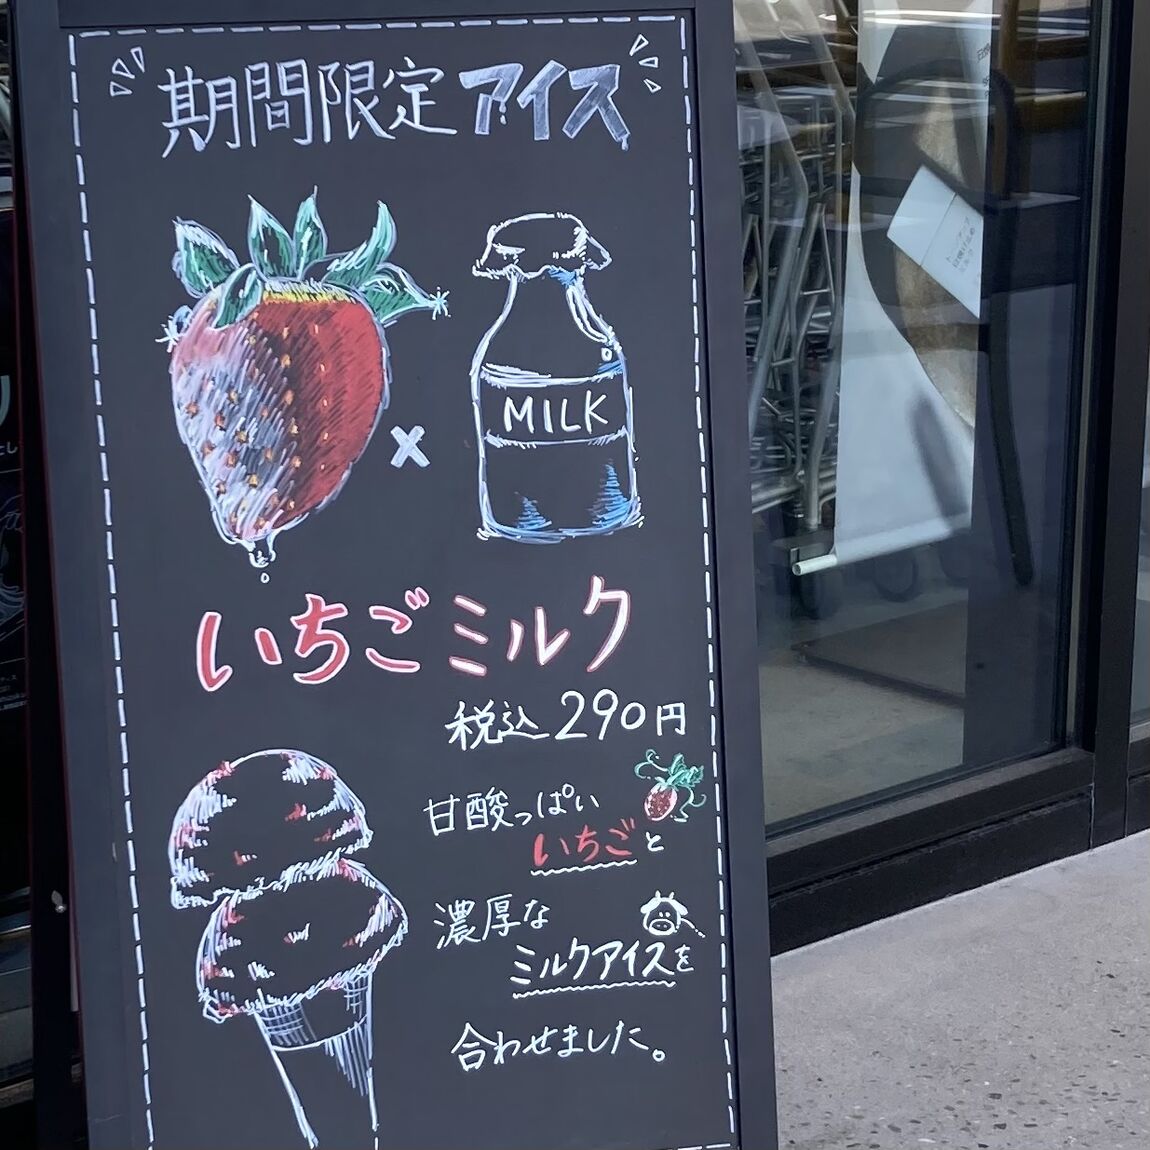 期間限定アイス
MILK
×
いちごミルク
税込290円
甘酸っぱい
いちごと
濃厚な
ミルクアイスを
合わせました。